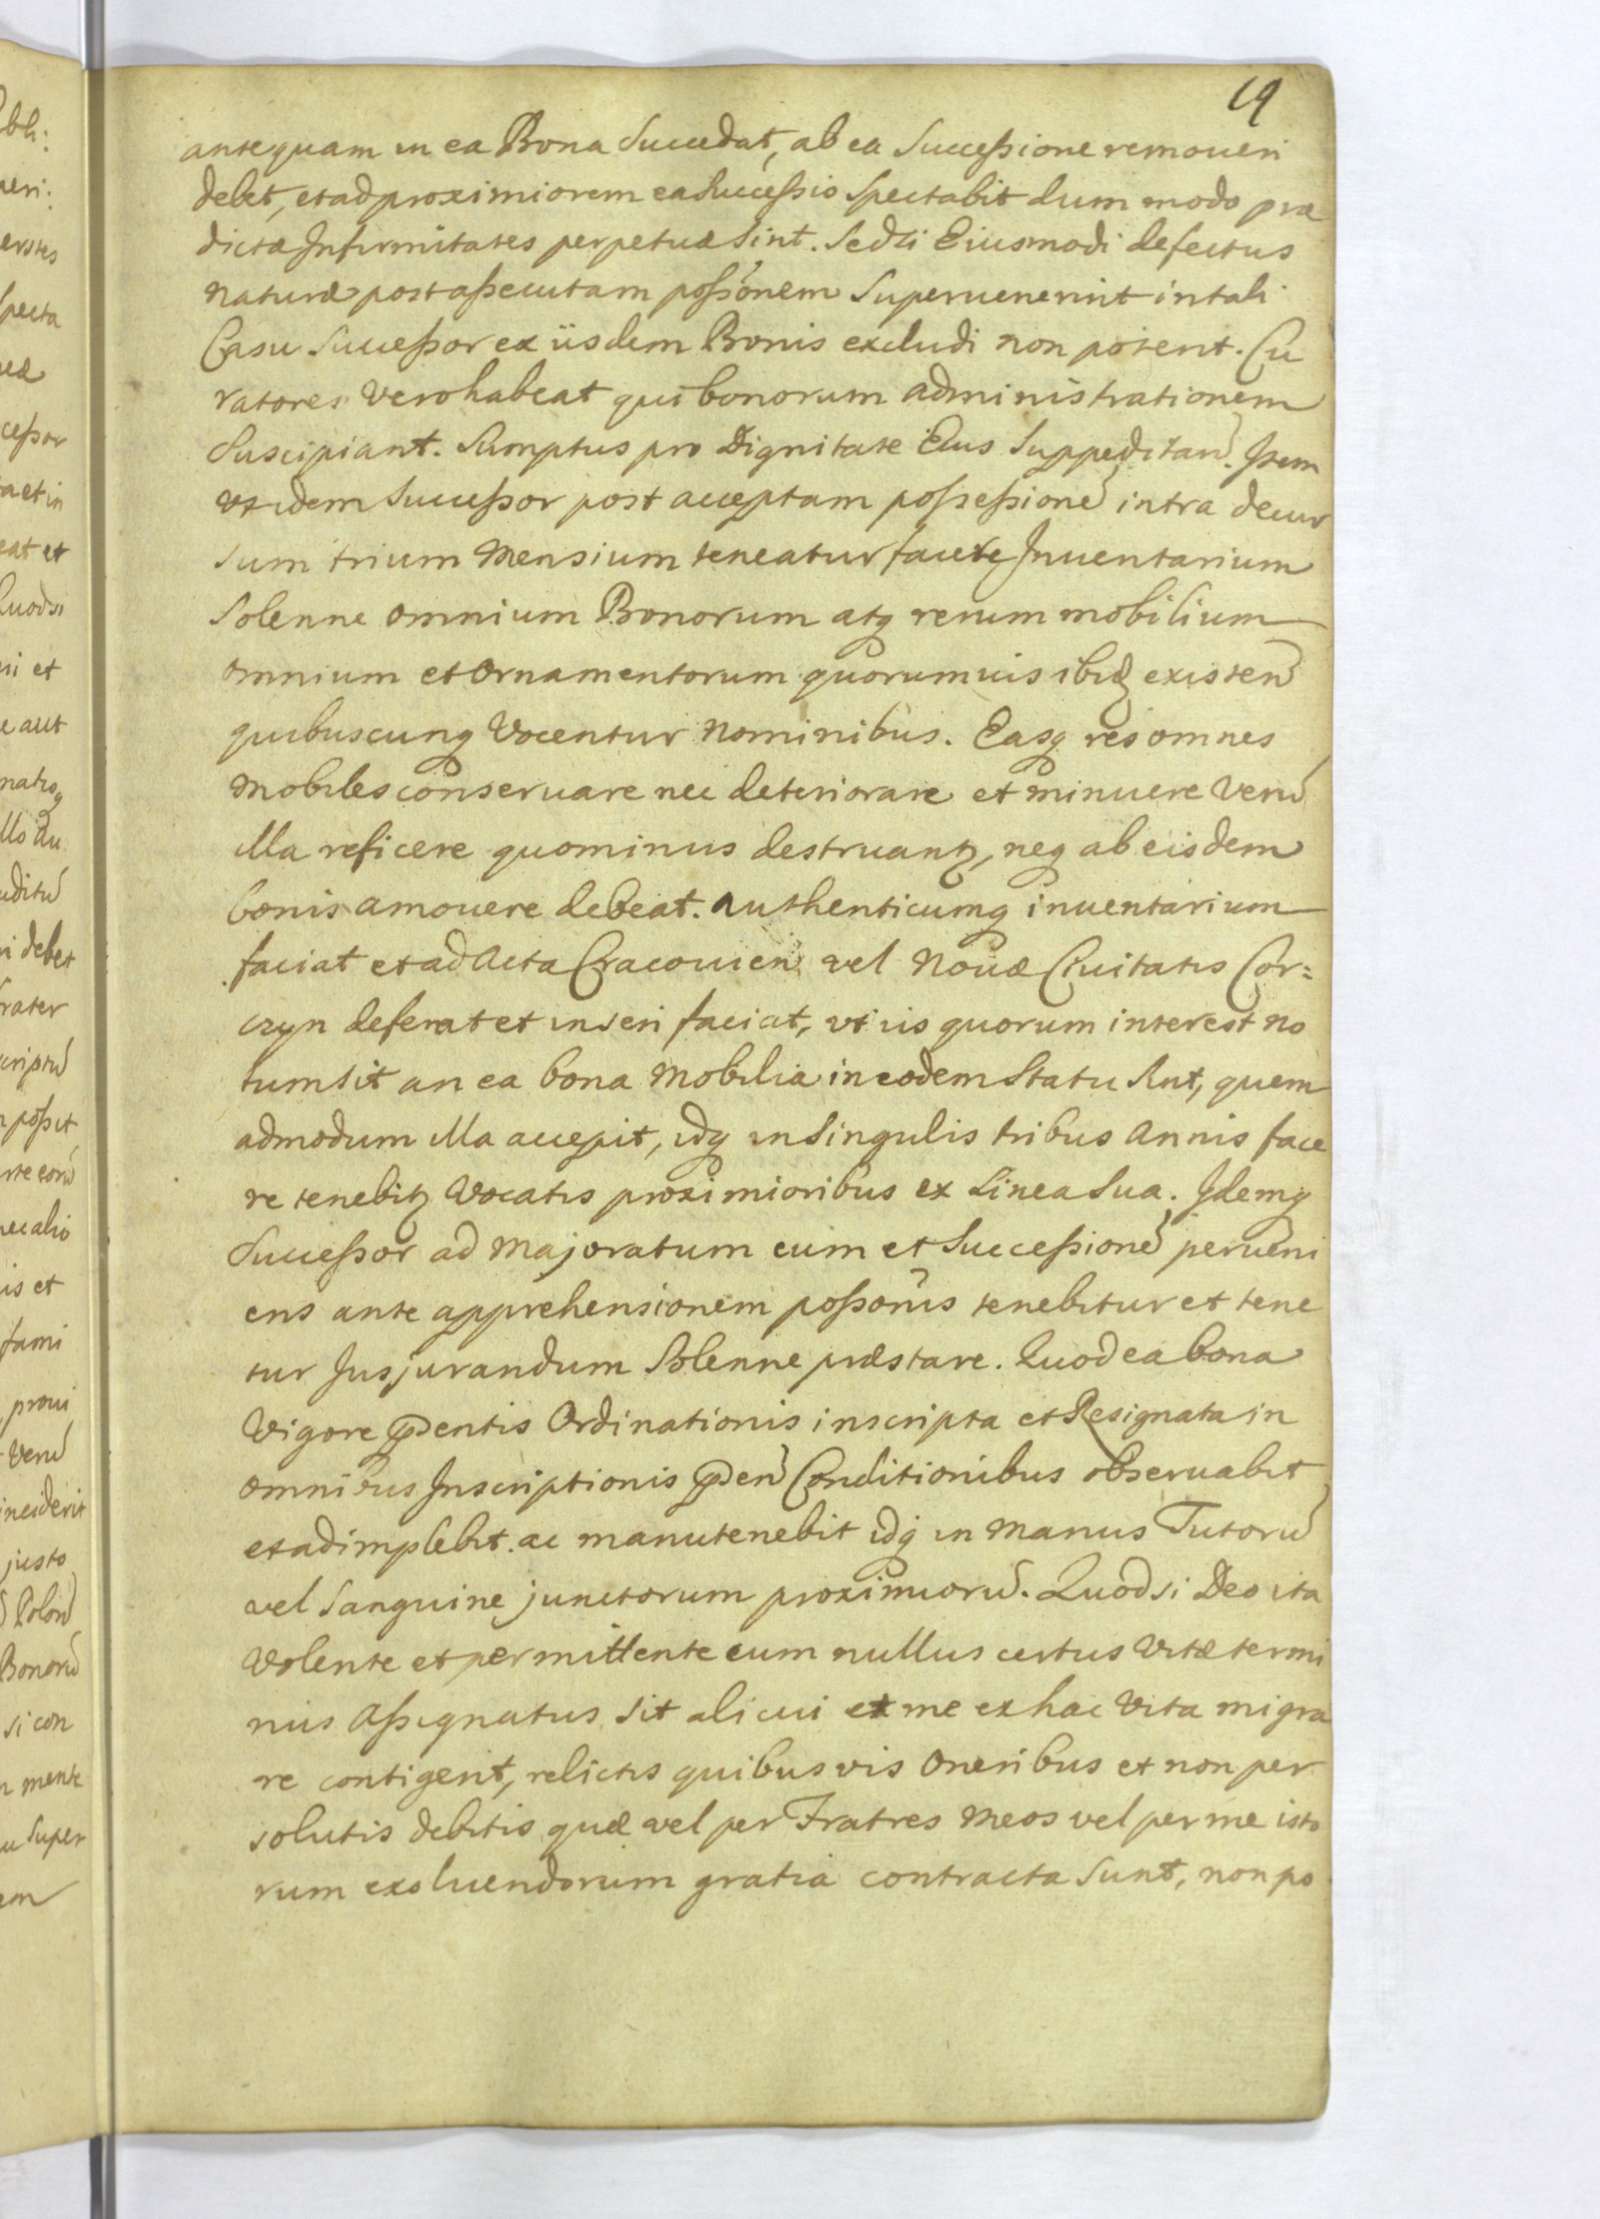 19
antequam in ea Bona Succedat, ab ea Successione remoueri
debet, et ad proximiorem ea Successio Spectabit dum modo præ
dictæ Infirmitates perpetuæ Sint. Sed si Eiusmodi defectus
naturæ post assecutam possõnem Superuenerint in tali
Casu Successor ex iisdem Bonis excludi non poterit. Cu
ratores vero habeat qui bonorum administrationem
Suscipiant. Sumptus pro Dignitate Eius Suppeditañ. Item
vt idem Successor post acceptam possessionẽ intra decur
sum trium Mensium teneatur facere Inuentarium
Solenne omnium Bonorum atq rerum mobilium
omnium et Ornamentorum quorumuis ibid existeñ
quibuscunq Vocentur Nominibus. Easq res omnes
Mobiles conseruare nec deteriorare et minuere Verũ
illa reficere quominus destruantz, neq ab eisdem
bonis amouere debeat. Authenticumq inuentarium
faciat et ad Acta Cracouien vel Nouæ Ciuitatis Cor=
czyn deferat et inseri faciat, vt iis quorum interest no
tum sit an ea bona Mobilia in eodem Statu Sint, quem
admodum illa accepit, idq in Singulis tribus Annis face
re tenebitz Vocatis proximioribus ex Linea Sua. Idemq
Successor ad Majoratum eum et Successionẽ perueni
ens ante apprehensionem possoñis tenebitur et tene
tur Jusjurandum Solenne præstare. Quod ea bona
Vigore pñdentis Ordinationis inscripta et Resignata in
omnibus Inscriptionis pñdeñ Conditionibus obseruabit
et adimplebit ac manutenebit idq in manus Tutorũ
vel Sanguine junctorum proximiorũ. Quod si Deo ita
Volente et permittente cum nullus certus Vitæ termi
nus Assignatus Sit alicui et me ex hac Vita migra
re contigerit, relictis quibusvis Oneribus et non per
solutis debitis quæ vel per Fratres Meos vel per me isto
rum exoluendorum gratia contracta Sunt, non po